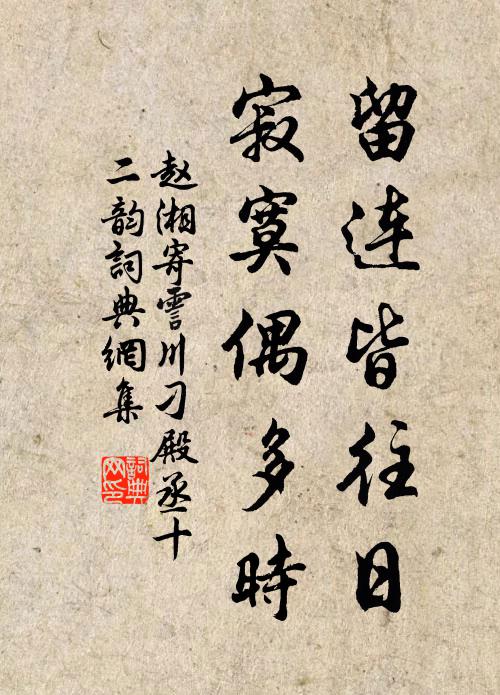 留連皆往日
寂寞偶多時
赵湘寄霅川刁殿丞十
二韵詞典網集
詞典网印